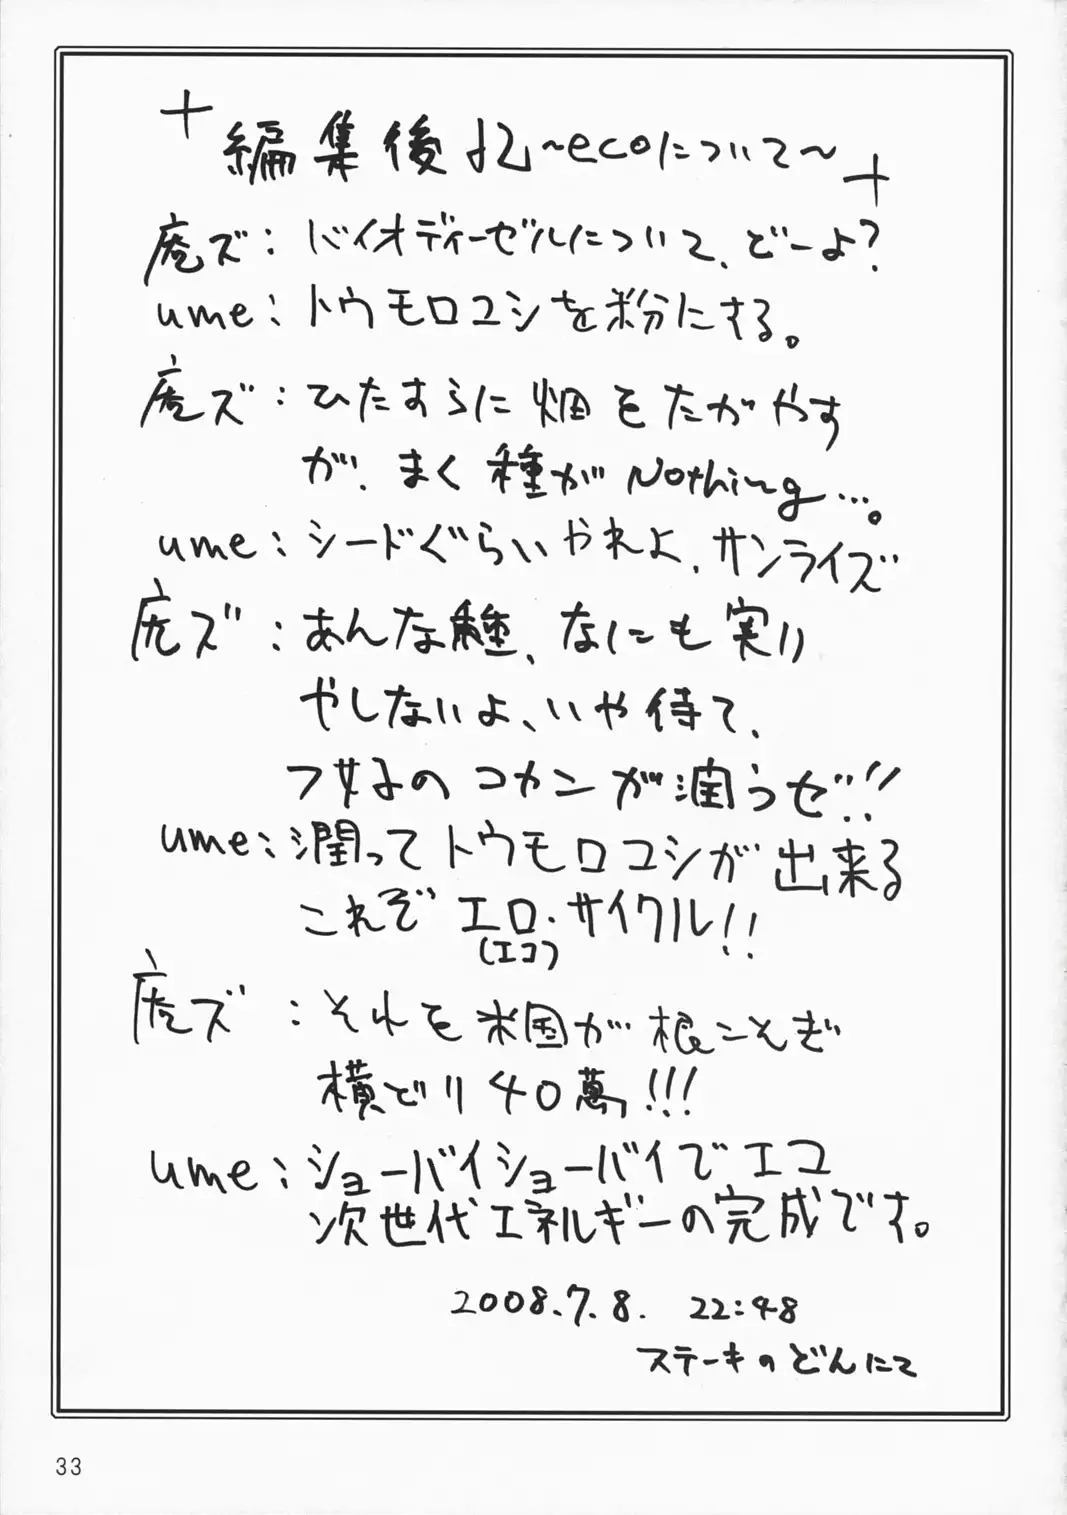 編集後記~ecoについて~
虎ズ:バイオディーゼルについて、どーよ?
ume:トウモロコシを粉にする。
虎ズ:ひたすらに畑をたがやす
が!まく種がNothing…。
ume:シードぐらいやれよ、サンライズ
虎ズ:あんな種、なにも実り
やしないよ、いや待て、
フ女子のコカンが潤うゼ!!
ume:潤ってトウモロコシが出来る
これぞエロ・サイクル!!
(エコ)
虎ズ:それを米国が根こそぎ
横どり40萬!!!
ume:ショーバイショーバイでエコ
次世代エネルギーの完成です。
2008.7.8. 22:48
ステーキのどんにて
33